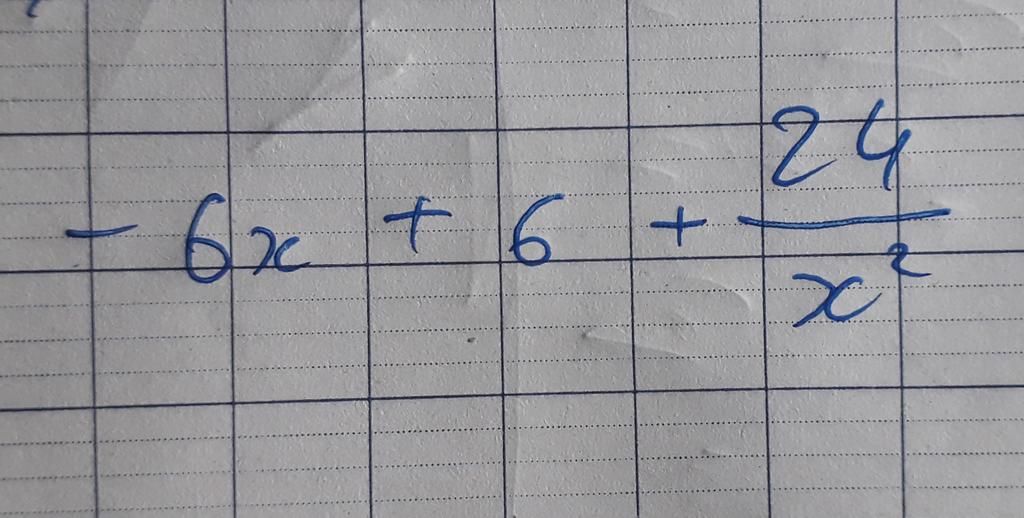 - 6x + 6 + 24/x²